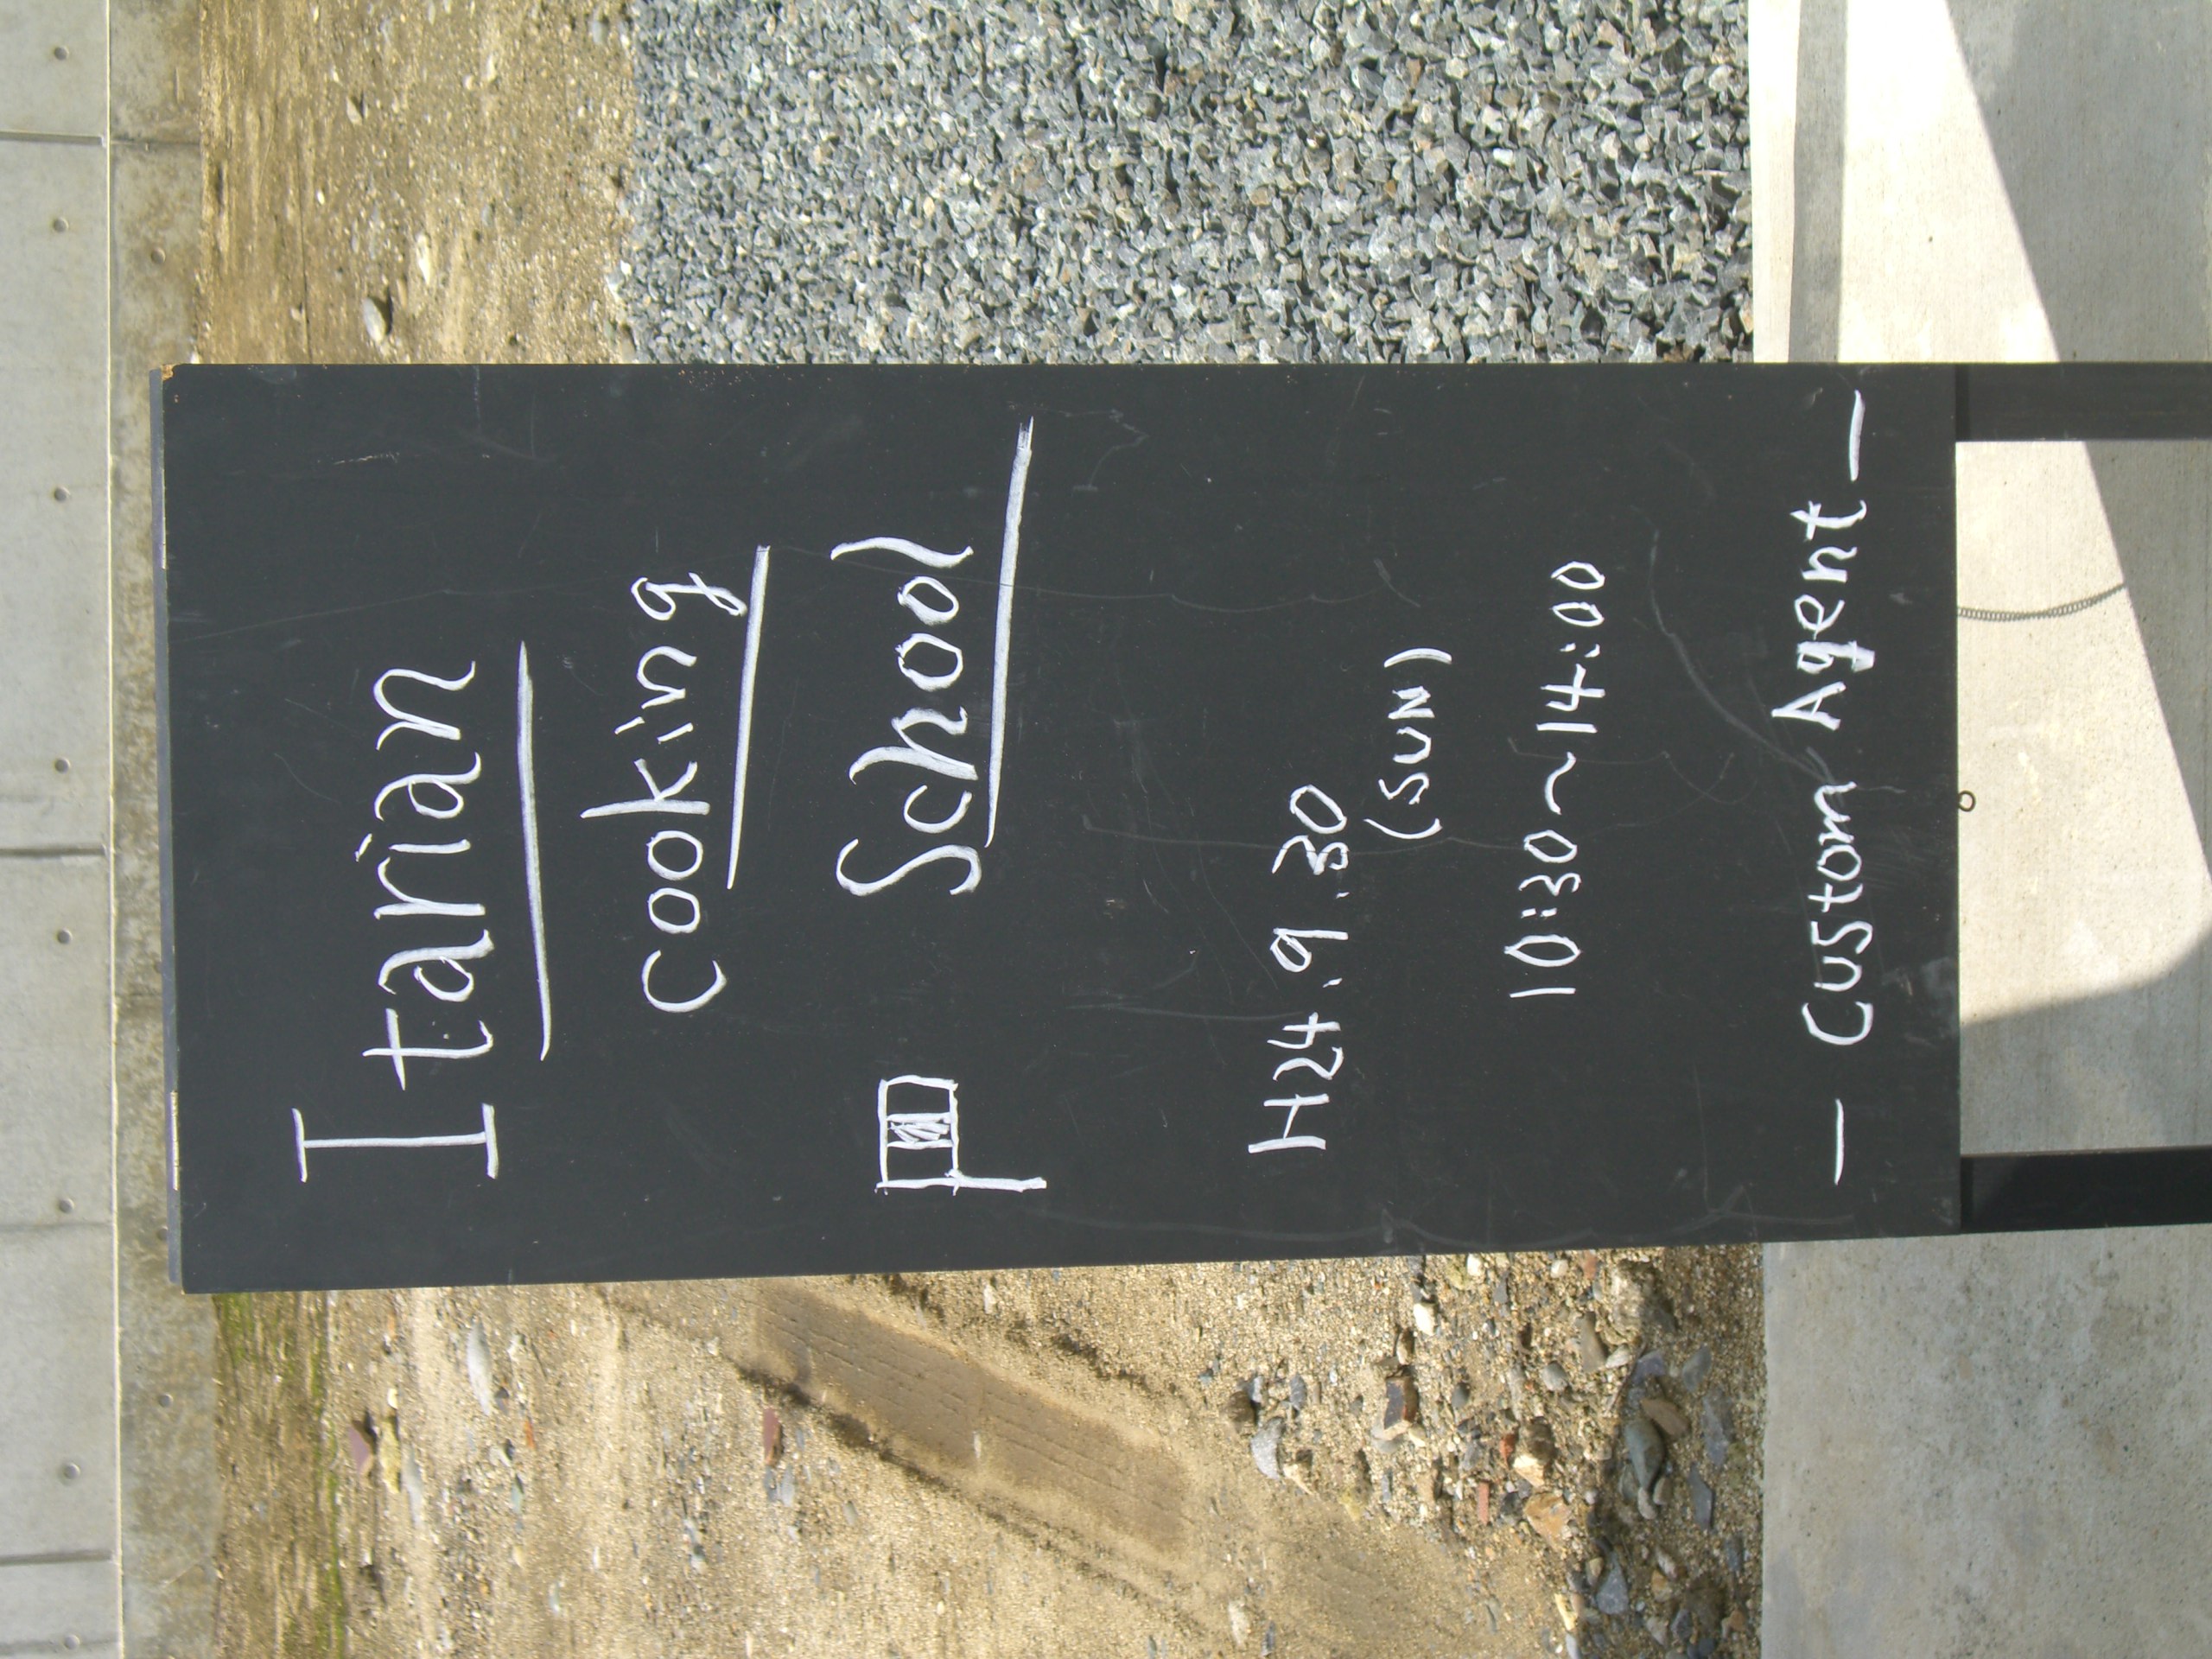 Itarian
cooking
School
H24.9.30
(SUN)
10:30~14:00
— Custom Agent —